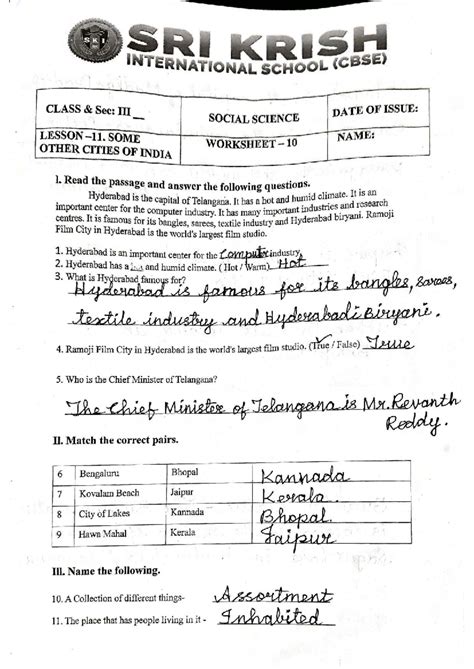 SKI
SRI KRISH
INTERNATIONAL SCHOOL (CBSE)
CLASS & Sec: III __
SOCIAL SCIENCE
DATE OF ISSUE:
LESSON –11. SOME
OTHER CITIES OF INDIA
WORKSHEET – 10
NAME:
I. Read the passage and answer the following questions.
Hyderabad is the capital of Telangana. It has a hot and humid climate. It is an
important center for the computer industry. It has many important industries and research
centres. It is famous for its bangles, sarees, textile industry and Hyderabad biryani. Ramoji
Film City in Hyderabad is the world's largest film studio.
1. Hyderabad is an important center for the Computer industry.
2. Hyderabad has a hot and humid climate. ( Hot / Warm) Hot
3. What is Hyderabad famous for?
Hyderabad is famous for its bangles, Sarees,
textile industry and Hyderabadi Biryani.
4. Ramoji Film City in Hyderabad is the world's largest film studio. (True / False) True
5. Who is the Chief Minister of Telangana?
The Chief Minister of Telangana is Mr. Revanth
Reddy.
II. Match the correct pairs.
6 Bengaluru Bhopal Kannada
7 Kovalam Beach Jaipur Kerala.
8 City of Lakes Kannada Bhopal.
9 Hawa Mahal Kerala Jaipur
III. Name the following.
10. A Collection of different things- Assortment
11. The place that has people living in it - Inhabited